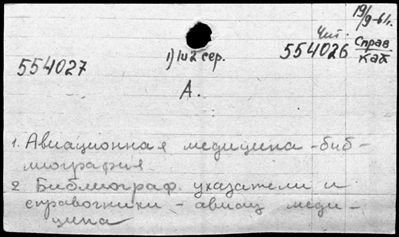 19/9-61г.
Чит.
554026 Справ
Каб
1) 1и2 сер.
554027
А.
1. Авиационная медицина - биб-
лиография
2. Библиограф. указатели и
справочники - авиац. меди-
цина